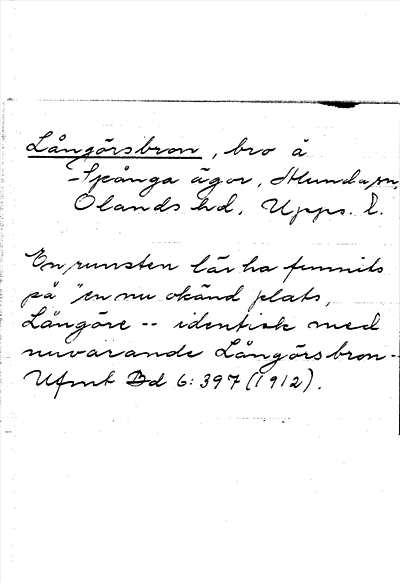 Långörsbron, bro å
Spånga ägor, Stunda sn,
Olands hd, Upps. l.
En runsten lär ha funnits
på "en nu okänd plats,
Långöre -- identisk med
nuvarande Långörsbron -
Ufmt Bd 6:397 (1912).